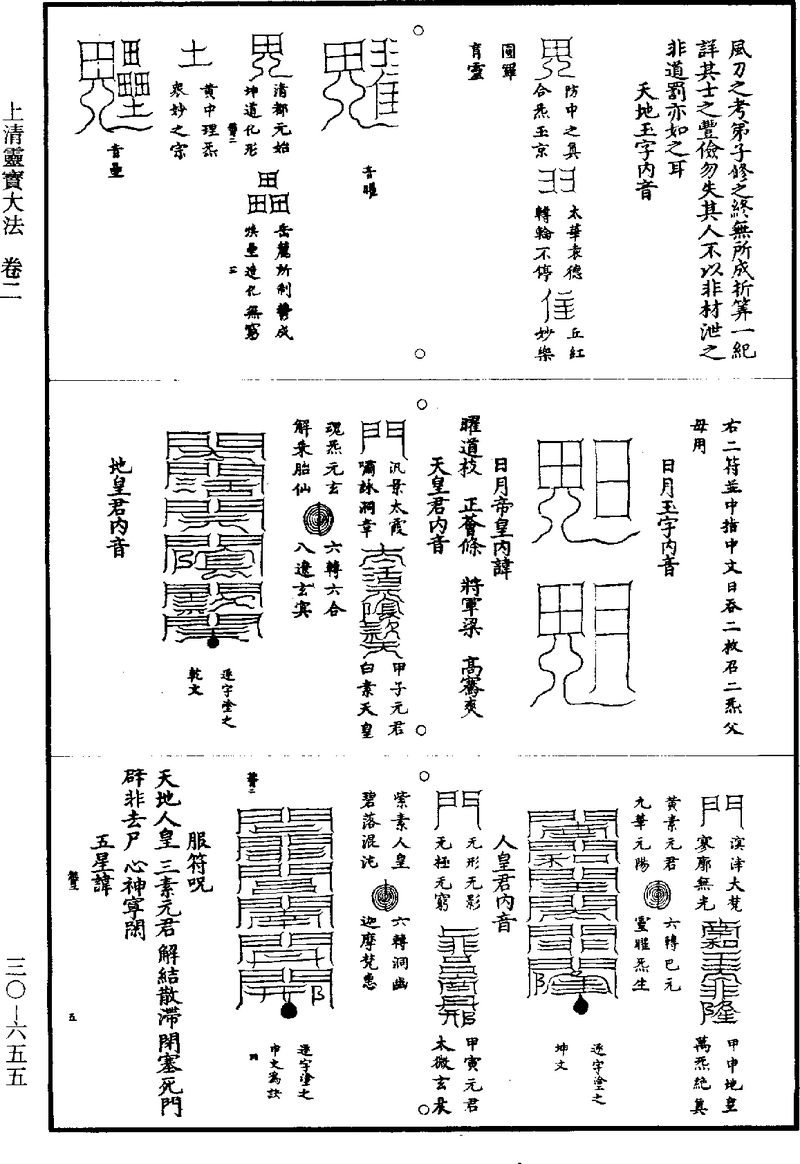 上清靈寶大法　卷二
三〇—六五五
風刀之考弟子修之終無所成折筭一紀
詳其士之豐儉勿失其人不以非材泄之
非道罰亦如之耳
天地玉字内音
防中之真
合炁玉京
太華哀德
轉輪不停
丘紅
妙樂
團羅
育靈
音曜
清都元始
坤道化形
岳麓所制
造化無窮
土
黄中理炁
衆妙之宗
音壘
右二符並中指中文日吞二枚召二炁父
母用
日月玉字内音
日月帝皇内諱
曜道枝　正薈條　將軍梁　高騫爽
天皇君内音
門
汎景太霞
嘯詠洞章
甲子元君
白素天皇
魂炁元玄
解朱胎仙
六轉六合
八遁玄冥
逐字塗之
乾文
地皇君内音
門
溟涬大梵
寥廓無光
甲申地皇
萬炁總真
黄素元君
九華元陽
六轉巳元
靈曜炁生
逐字塗之
坤文
人皇君内音
門
无形无影
无極无窮
甲寅元君
太微玄辰
紫素人皇
碧落混沌
六轉洞幽
迦摩梵惠
逐字塗之
中文爲訣
服符呪
天地人皇　三素元君　解結散滯　閉塞死門
辟非去尸　心神寧閑
五星諱
五